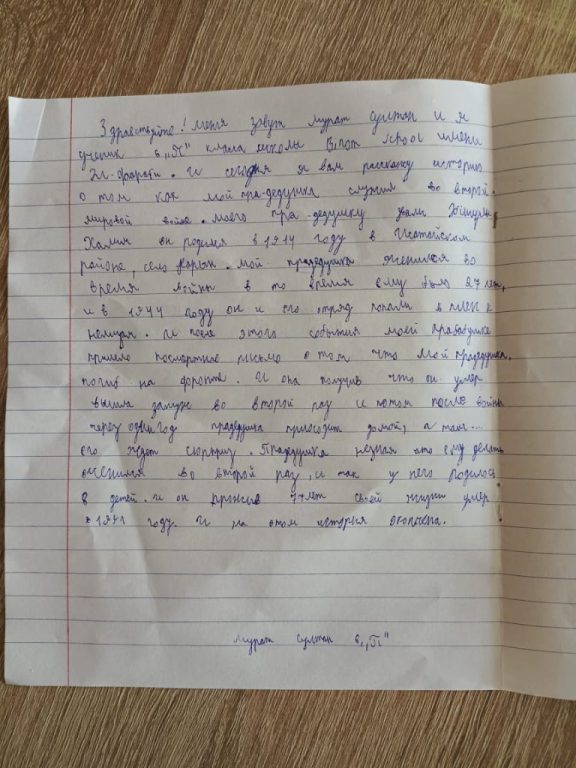 Здравствуйте! Меня зовут Мурат Султан и я
ученик 6 „П" класса школы школы имени
Аль-Фараби. И сегодня я вам расскажу историю
о том как мой пра-дедушка служил во второй
мировой войне. моего пра-дедушку звали
Халим он родился в 1914 году в Исатайском
районе, село Нарын. Мой прадедушка женился во
время войны в то время ему было 27 лет,
и в 1944 году он и его отряд попали в плен к
немцам. И после этого события моей прабабушке
пришло посмертное письмо о том что мой прадедушка
погиб на фронте. И она получив что он умер
вышла замуж во второй раз и потом после войны
через один год прадедушка приходит домой, а там...
его ждет сюрприз. Прадедушка незная что ему делать
оженился во второй раз, и так у него родилось
8 детей. и он прожив 77 лет своей жизни умер
в 1991 году. И на этом история окончена.
Мурат Султан 6 „П"